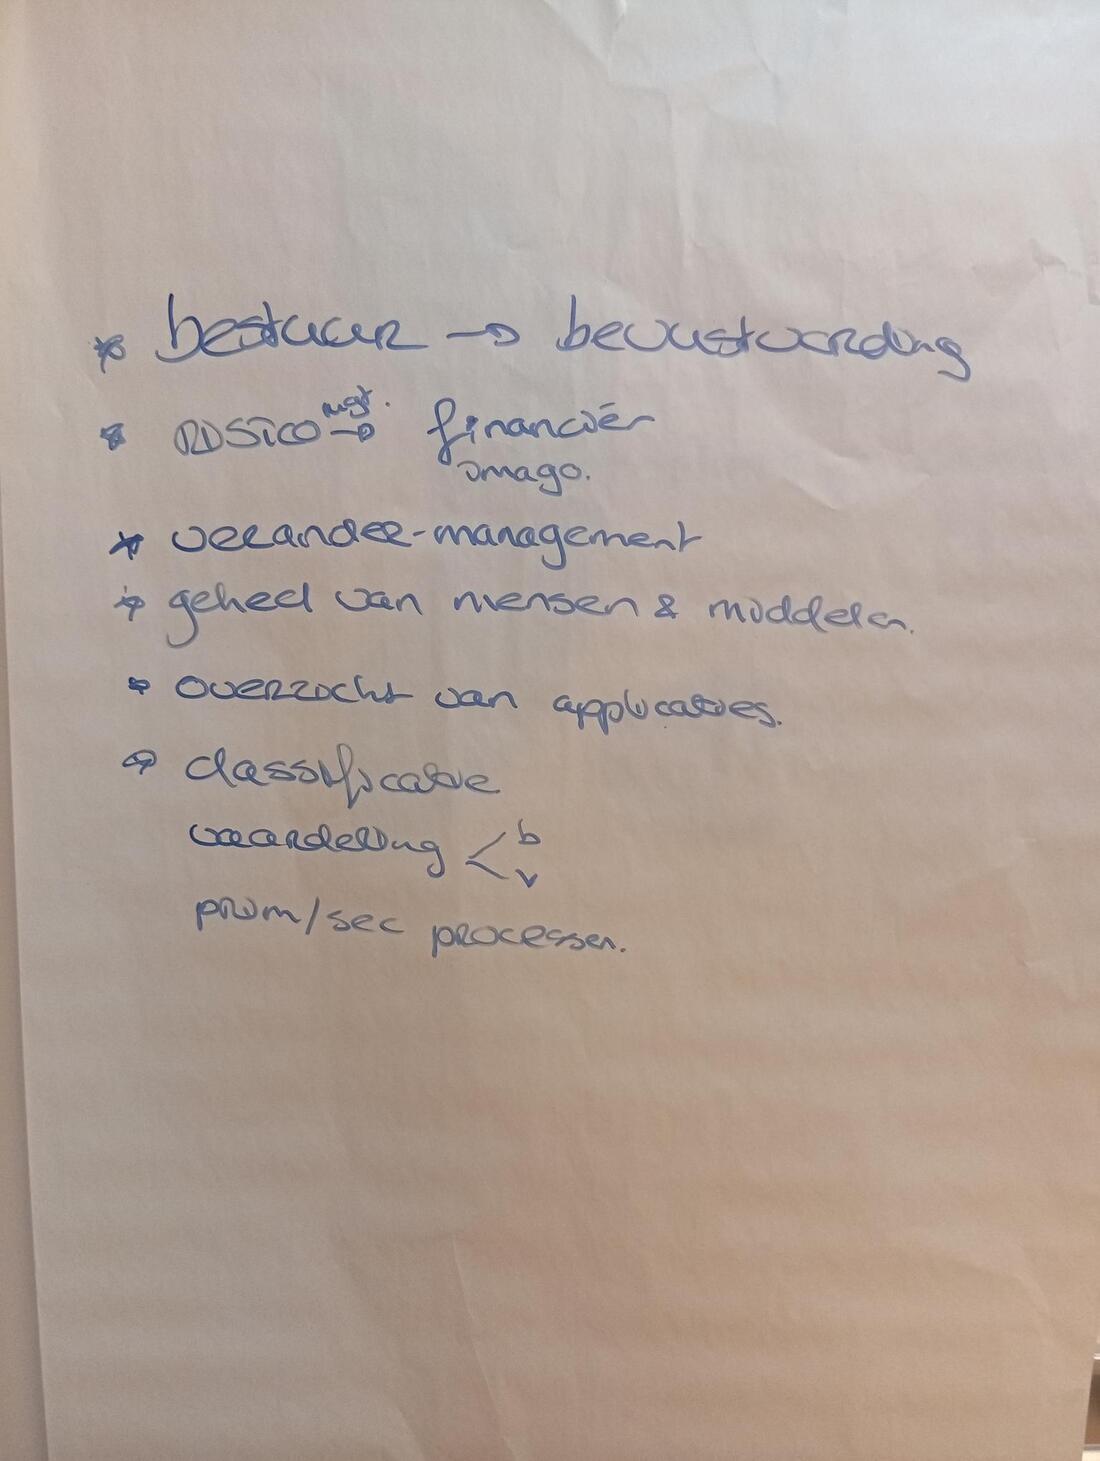 * bestuur → bewustwording
* Risico mgt. → financiën
imago.
* verander-management
* geheel van mensen & middelen.
* overzicht van applicaties.
* classificatie
waardering < b
v
prim/sec processen.